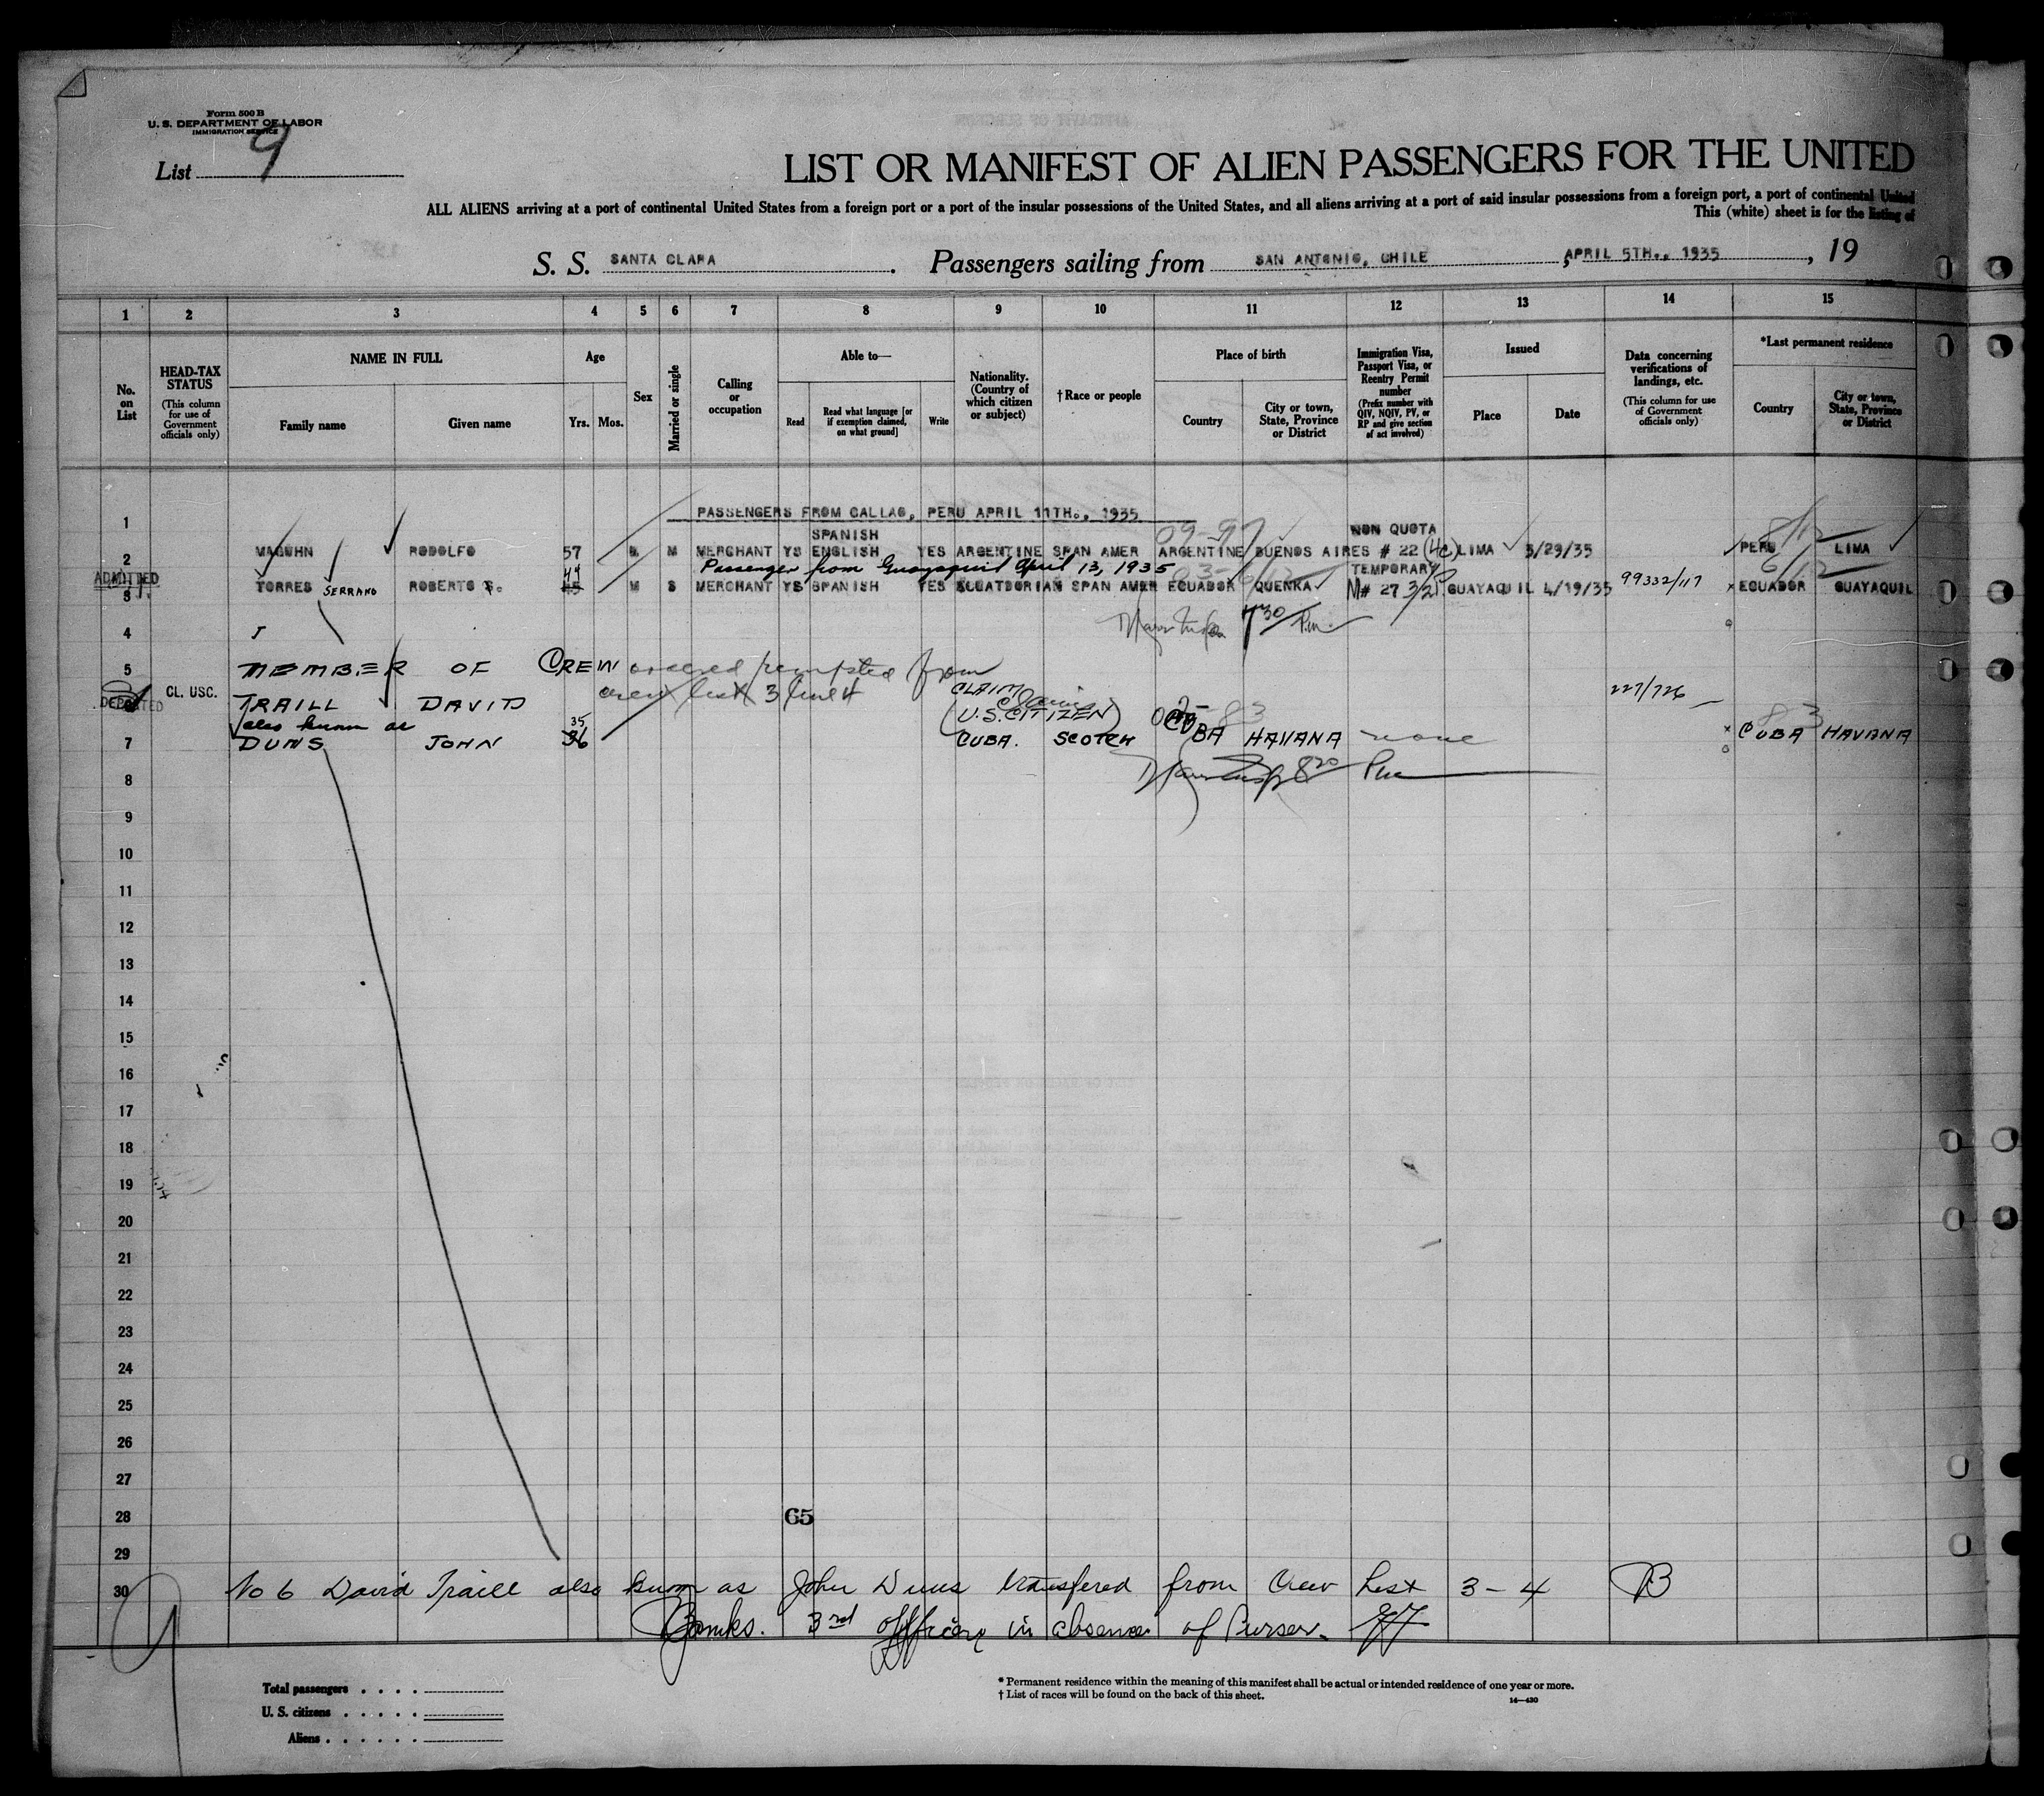 Form 500 B
U. S. DEPARTMENT OF LABOR
IMMIGRATION SERVICE
List 9
LIST OR MANIFEST OF ALIEN PASSENGERS FOR THE UNITED
ALL ALIENS arriving at a port of continental United States from a foreign port or a port of the insular possessions of the United States, and all aliens arriving at a port of said insular possessions from a foreign port, a port of continental United
This (white) sheet is for the listing of
S. S. SANTA CLARA. Passengers sailing from SAN ANTONIO, CHILE, APRIL 5TH., 1935, 19
1 2 3 4 5 6 7 8 9 10 11 12 13 14 15
No. on List
HEAD-TAX STATUS (This column for use of Government officials only)
NAME IN FULL
Family name
Given name
Age
Yrs. Mos.
Sex
Married or single
Calling or occupation
Able to—
Read
Read what language [or if exemption claimed, on what ground]
Write
Nationality. (Country of which citizen or subject)
† Race or people
Place of birth
Country
City or town, State, Province or District
Immigration Visa, Passport Visa, or Reentry Permit number (Prefix number with QIV, NQIV, PV, or RP and give section of act involved)
Issued
Place
Date
Data concerning verifications of landings, etc. (This column for use of Government officials only)
*Last permanent residence
Country
City or town, State, Province or District
1 PASSENGERS FROM CALLAO, PERU APRIL 11TH., 1935
SPANISH 09-97 NON QUOTA 8/12
2 RODOLFO 57 M M MERCHANT YS ENGLISH YES ARGENTINE SPAN AMER ARGENTINE BUENOS AIRES # 22 (4c) LIMA 3/29/35 PERU LIMA
44 Passenger from Guayaquil April 13, 1935 TEMPORARY 6/12
ADMITTED
3 TORRES SERRANO ROBERTO 45 M S MERCHANT YS SPANISH YES ECUATDORIAN SPAN AMER ECUADOR QUENKA M# 27 3/2 GUAYAQUIL 4/19/35 99332/117 x ECUADOR GUAYAQUIL
7 30 P.m.
4
5 MEMBER OF CREW ordered from
crew list 3 line 4
CLAIM
DEPORTED CL. USC. TRAILL DAVID (U.S. CITIZEN) 227/726
also known as 35 83 83
7 DUNS JOHN 36 CUBA. SCOTCH CUBA HAVANA none x CUBA HAVANA
8 20 Pm
8
9
10
11
12
13
14
15
16
17
18
19
20
21
22
23
24
25
26
27
28 65
29
30 No 6 David Traill also known as John Duns transfered from Crew List 3-4
3rd officer in absence of Purser.
Total passengers
U. S. citizens
Aliens
* Permanent residence within the meaning of this manifest shall be actual or intended residence of one year or more.
† List of races will be found on the back of this sheet.
14—430